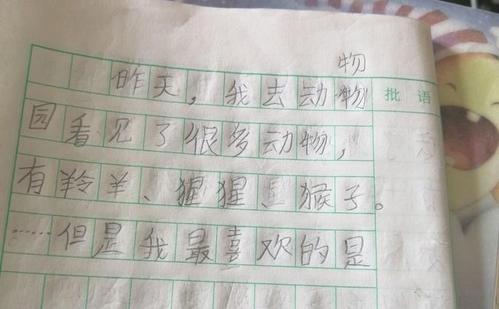 物
昨天，我去动物 批语
园看见了很多动物，
有羚羊、猩猩、猴子。
……但是我最喜欢的是